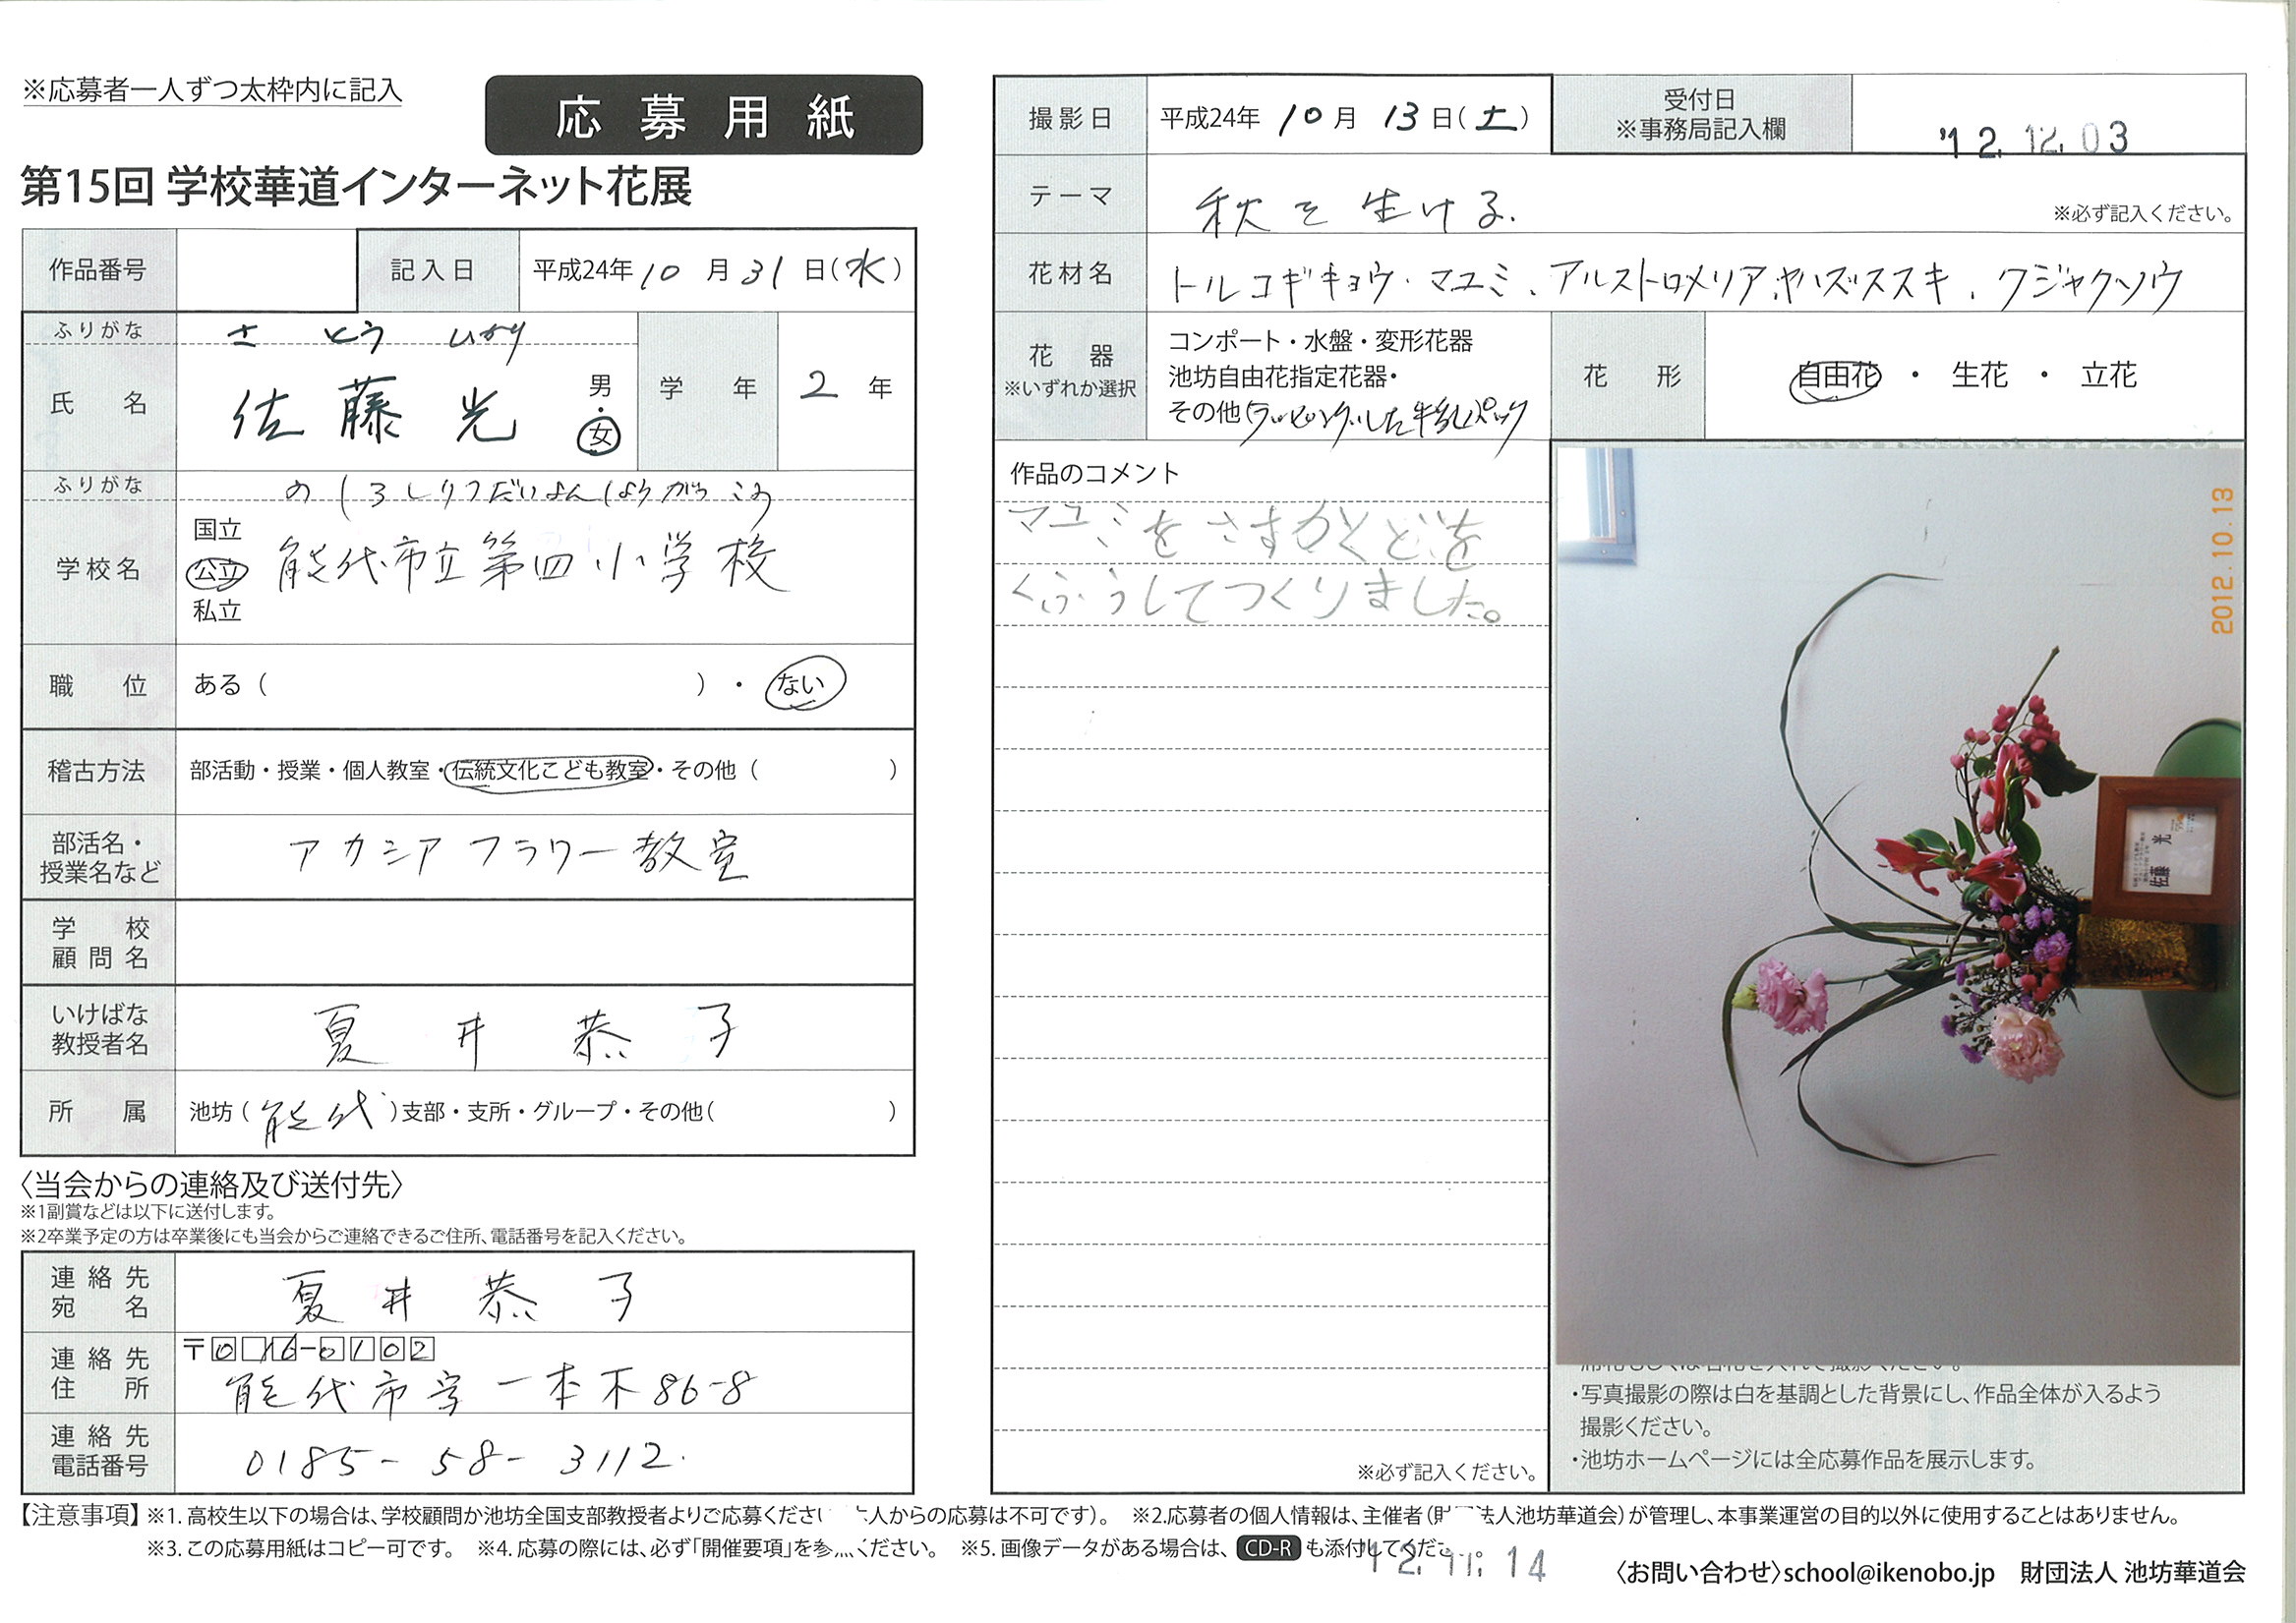 ※応募者一人ずつ太枠内に記入
応募用紙
第15回 学校華道インターネット花展
作品番号
記入日 平成24年10月31日(水)
ふりがな さとう ひかり
氏名 佐藤光 男・女
学年 2年
ふりがな のしろしりつだいよんしょうがっこう
学校名 国立 公立 私立 能代市立第四小学校
職位 ある( )・ない
稽古方法 部活動・授業・個人教室・伝統文化こども教室・その他( )
部活名・授業名など アカシアフラワー教室
学校顧問名
いけばな教授者名 夏井恭子
所属 池坊(能代)支部・支所・グループ・その他( )
〈当会からの連絡及び送付先〉
※1副賞などは以下に送付します。
※2卒業予定の方は卒業後にも当会からご連絡できるご住所、電話番号を記入ください。
連絡先宛名 夏井恭子
連絡先住所 〒016-0102
能代市字一本木86-8
連絡先電話番号 0185-58-3112
撮影日 平成24年10月13日(土)
受付日 ※事務局記入欄 '12.12.03
テーマ 秋を生ける。 ※必ず記入ください。
花材名 トルコギキョウ・マユミ、アルストロメリア、ヤハズススキ、クジャクソウ
花器 ※いずれか選択 コンポート・水盤・変形花器
池坊自由花指定花器・
その他(ラッピングした牛乳パック
花形 自由花・生花・立花
作品のコメント
マユミをさすかくどを
くふうしてつくりました。
※必ず記入ください。
2012.10.13
佐藤 光
・写真撮影の際は白を基調とした背景にし、作品全体が入るよう
撮影ください。
・池坊ホームページには全応募作品を展示します。
【注意事項】※1.高校生以下の場合は、学校顧問か池坊全国支部教授者よりご応募くださ 人からの応募は不可です)。 ※2.応募者の個人情報は、主催者(財 法人池坊華道会)が管理し、本事業運営の目的以外に使用することはありません。
※3.この応募用紙はコピー可です。 ※4.応募の際には、必ず「開催要項」を参 ください。 ※5.画像データがある場合は、CD-Rも添付してくだ
'12.11.14
〈お問い合わせ〉school@ikenobo.jp 財団法人 池坊華道会